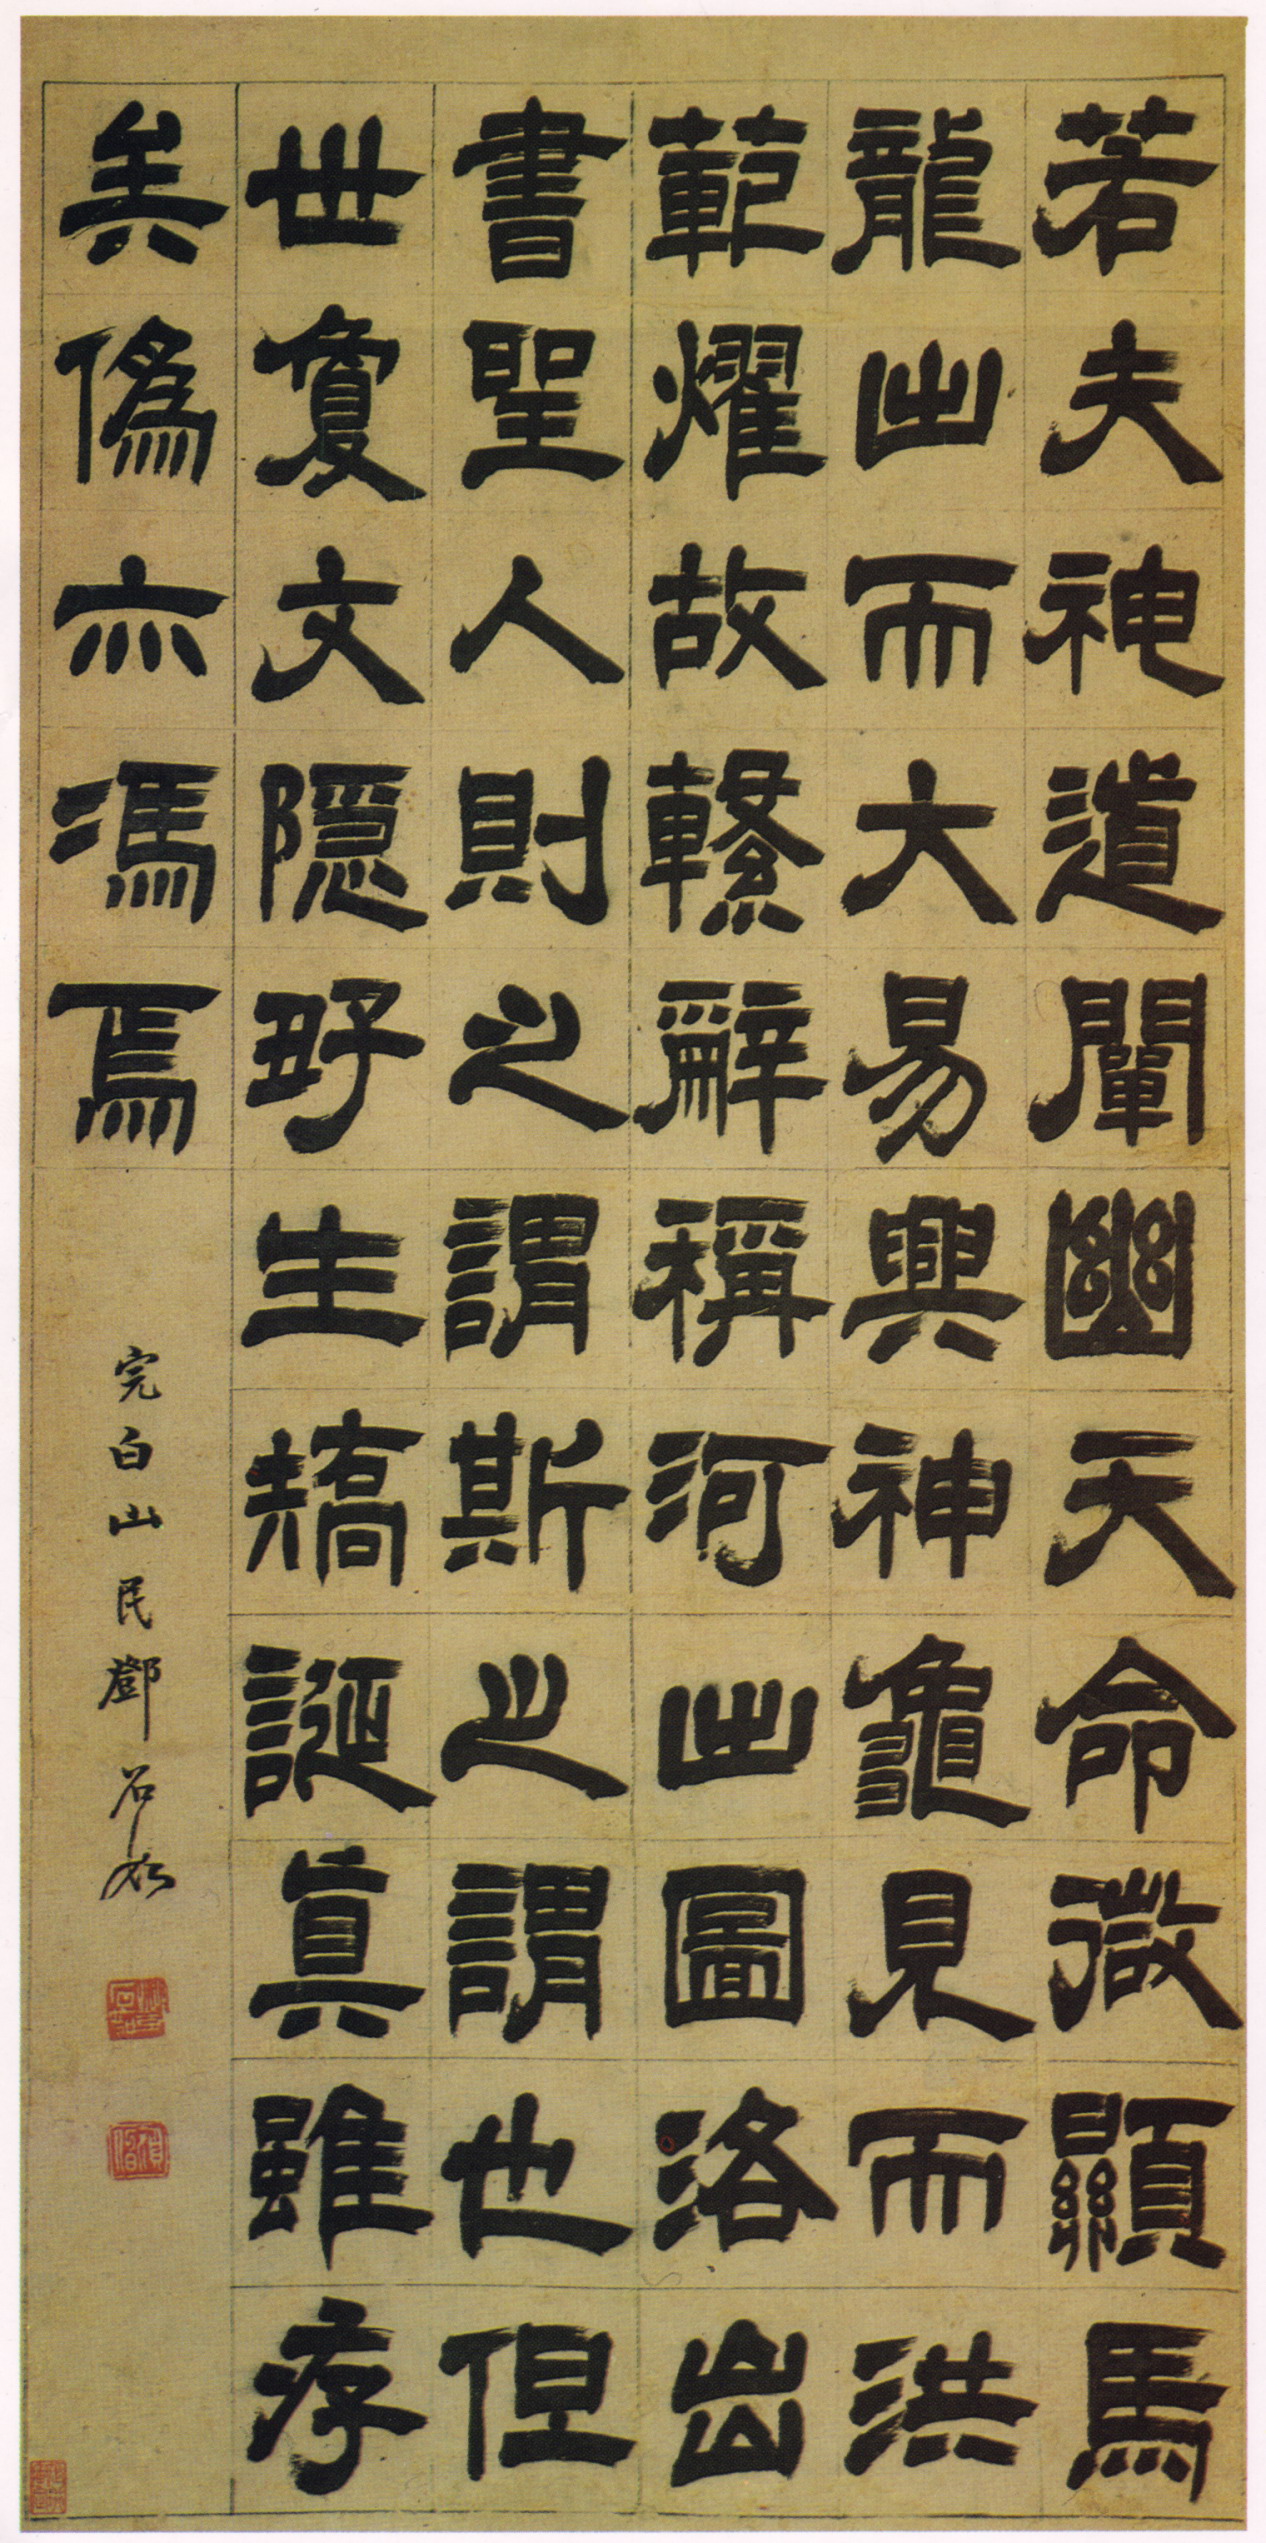 若夫神道闡幽天命微顯馬
龍出而大易興神龜見而洪
範耀故繫辭稱河出圖洛出
書聖人則之謂斯之謂也但
世敻文隱好生矯誕真雖存
矣偽亦馮焉
完白山民鄧石如